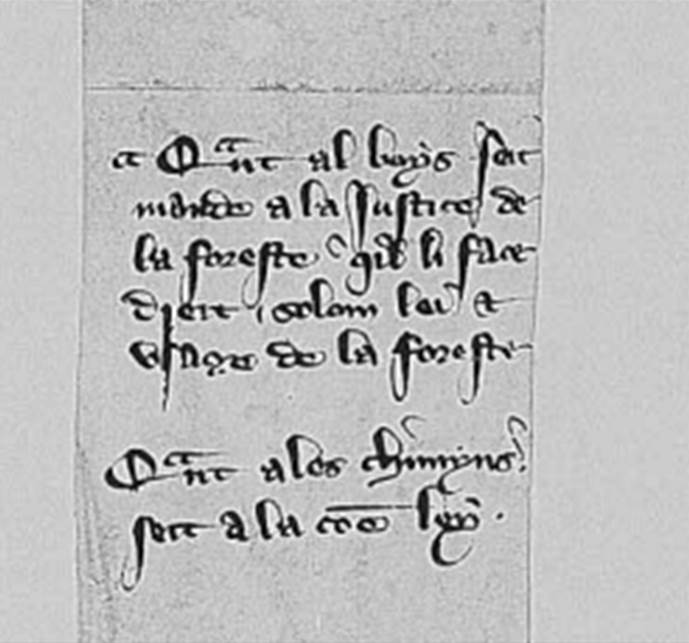 Qant al boys soit
mande a la Justice de
la foreste qil li face
droit solom lei et
usage de la foreste
Qant a les chimyns
soit a la coe ley.